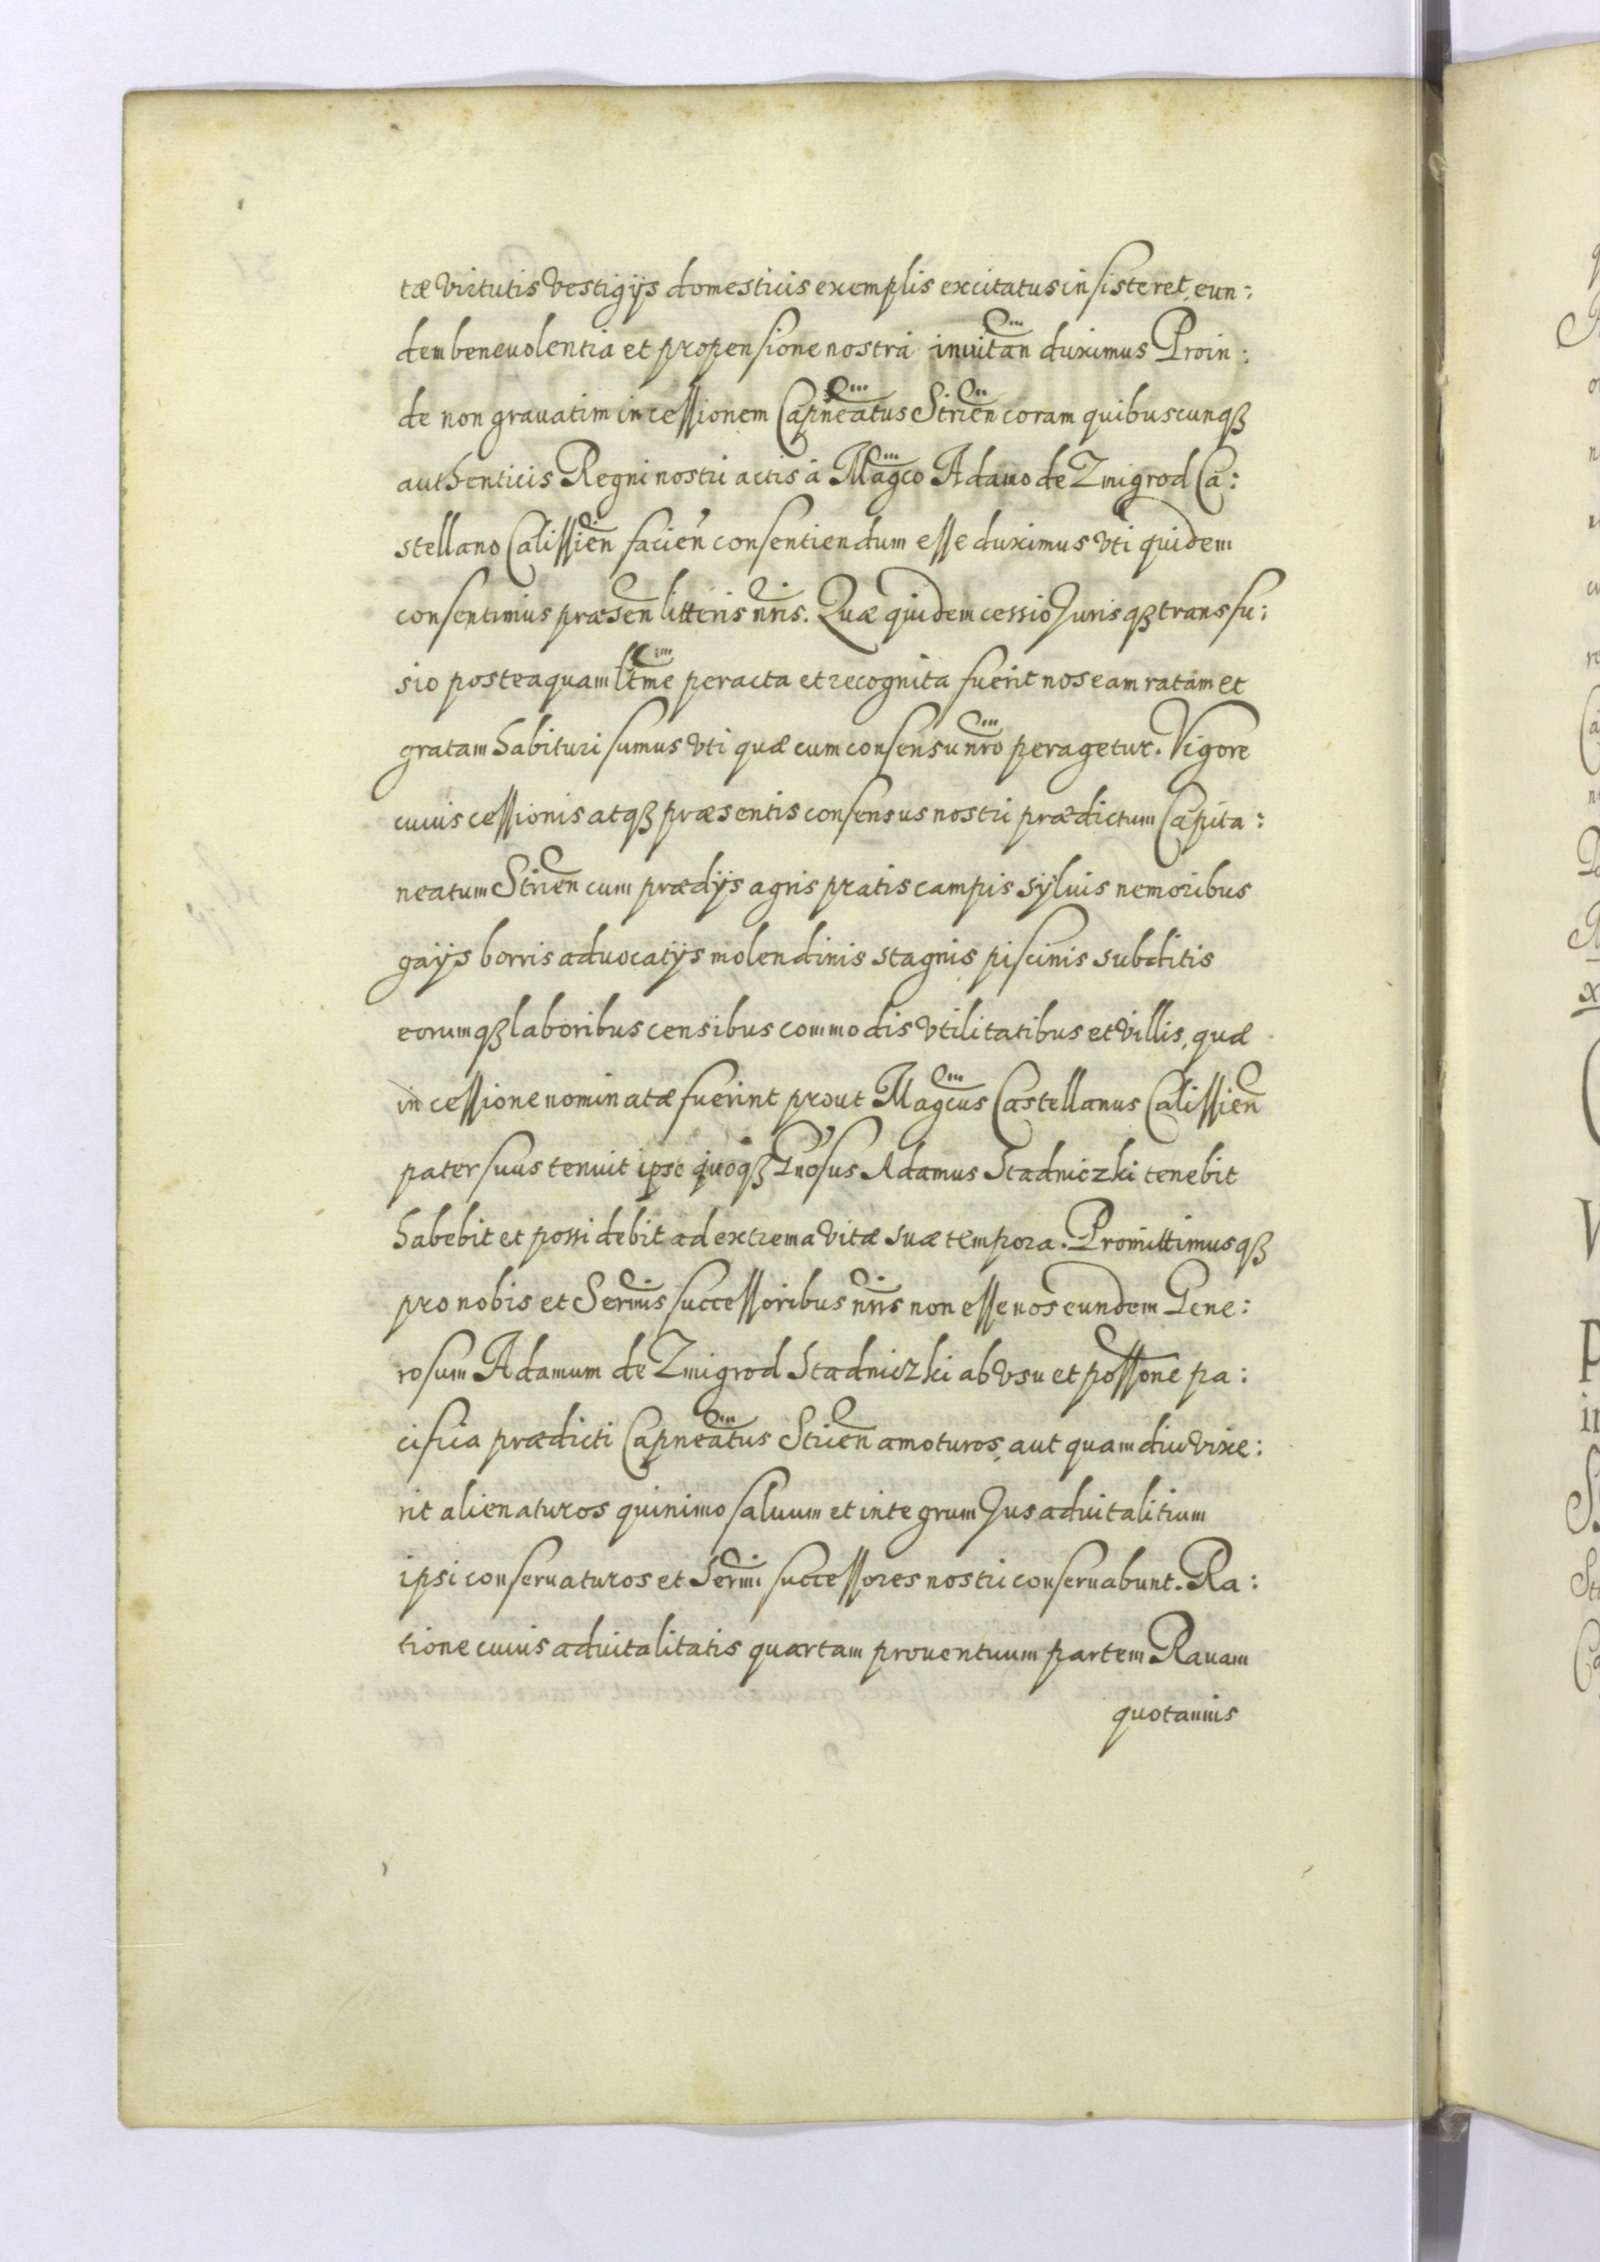 tæ virtutis vestigijs domesticis exemplis excitatus insisteret, eun:
dem beneuolentia et propensione nostrâ inuitan duximus Proin:
de non grauatim in cessionem Capneatus Strien coram quibuscunq3
authenticis Regni nostri actis à Magco Adamo de Zmigrod Ca:
stellano Calissien facien consentiendum esse duximus vti quidem
consentimus præsen litteris nris. Quæ quidem cessio Juris q3 transfu:
sio posteaquam ltme peracta et recognita fuerit nos eam ratam et
gratam habituri sumus vti quæ cum consensu nro peragetur. Vigore
cuius cessionis atq3 præsentis consensus nostri prædictum Capita:
neatum Strien cum prædijs agris pratis campis syluis nemoribus
gaijs borris aduocatijs molendinis stagnis piscinis subditis
eorumq3 laboribus censibus commodis vtilitatibus et villis, quæ
in cessione nominatæ fuerint prout Magcus Castellanus Calissien
pater suus tenuit ipse quoq3 Gnosus Adamus Stadniczki tenebit
habebit et possidebit ad extrema vitæ suæ tempora. Promittimusq3
pro nobis et Sermis successoribus nris non esse nos eundem Gene:
rosum Adamum de Zmigrod Stadniczki ab vsu et possone pa:
cifica prædicti Capneatus Strien amoturos, aut quam diu vixe:
rit alienaturos quinimo saluum et integrum Jus aduitalitium
ipsi conseruaturos et Sermi successores nostri conseruabunt. Ra:
tione cuius aduitalitatis quartam prouentuum partem Rauam
quotannis